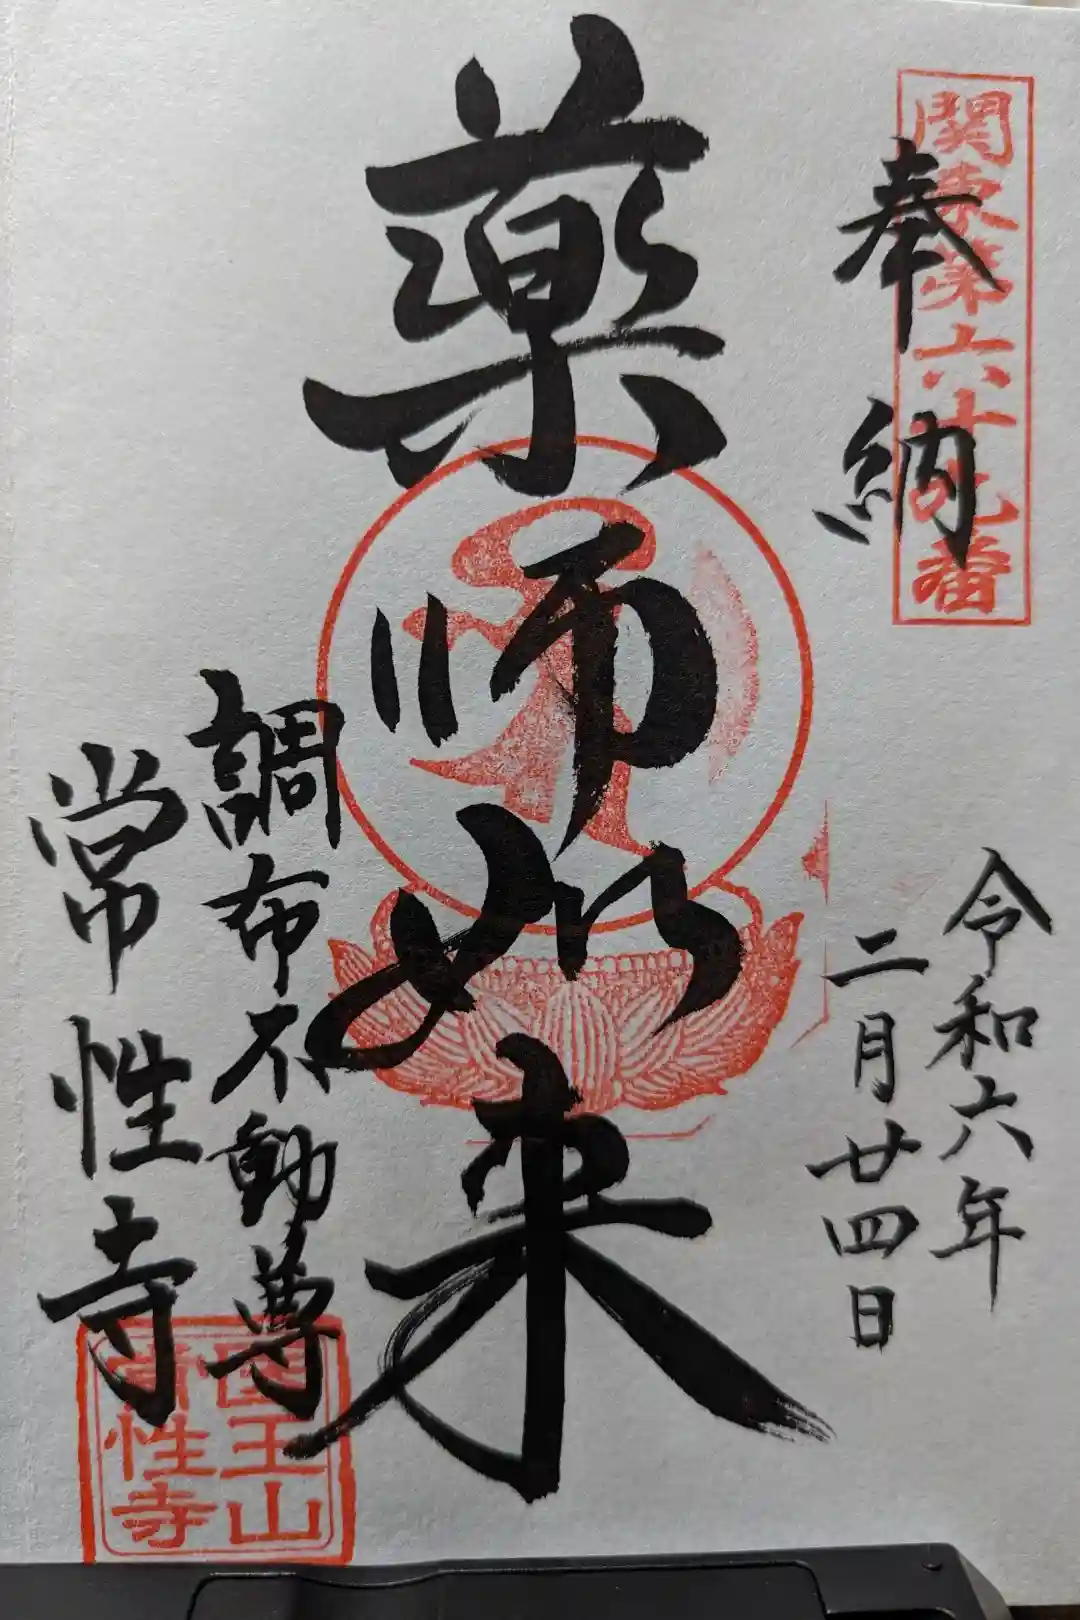 関東第六十九番
奉納
令和六年
二月廿四日
薬師如来
調布不動尊
常性寺
医王山
常性寺